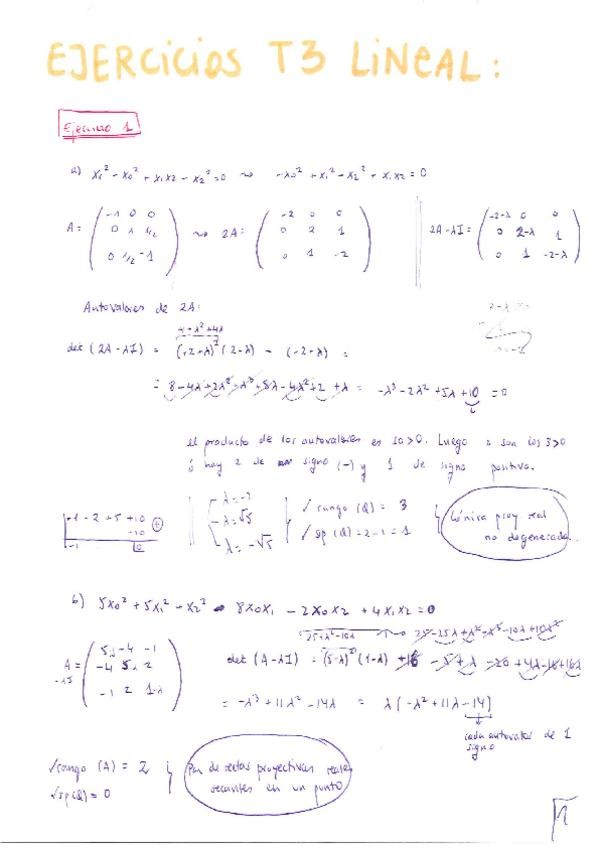 EJERCICIOS T3 LINEAL:
Ejercicio 1
a) x₁² - x₀² + x₁x₂ - x₂² = 0 ⇝ -x₀² + x₁² - x₂² + x₁x₂ = 0
A = ( -1 0 0 ; 0 1 1/2 ; 0 1/2 -1 ) ⇝ 2A: ( -2 0 0 ; 0 2 1 ; 0 1 -2 ) 2A - λI = ( -2-λ 0 0 ; 0 2-λ 1 ; 0 1 -2-λ )
Autovalores de 2A:
4+λ²+4λ
det (2A - λI) = (-2-λ)² (2-λ) - (-2-λ) =
= 8 - 4λ + 2λ² - λ³ + 8λ - 4λ² + 2 + λ = -λ³ - 2λ² + 5λ + 10 = 0
el producto de los autovalores es 10>0. Luego o son los 3>0
ó hay 2 de signo (-) y 1 de signo positivo.
-1 -2 +5 +10
-10
-1 0
λ = -2
λ = √5
λ = -√5
✓ rango (Q) = 3
✓ sp (Q) = 2-1 = 1
Cónica proy real
no degenerada
b) 5x₀² + 5x₁² - x₂² - 8x₀x₁ - 2x₀x₂ + 4x₁x₂ = 0
25+λ²-10λ → 25-25λ+λ²-λ³-10λ+10λ²
A - λI = ( 5-λ -4 -1 ; -4 5-λ 2 ; -1 2 1-λ ) det (A - λI) = (5-λ)² (1-λ) +16 -5+λ -20 +4λ-16+16λ
= -λ³ + 11λ² - 14λ = λ(-λ² + 11λ - 14)
cada autovalor de 1
signo
✓ rango (A) = 2
✓ sp(Q) = 0
Par de rectas proyectivas reales
secantes en un punto
1